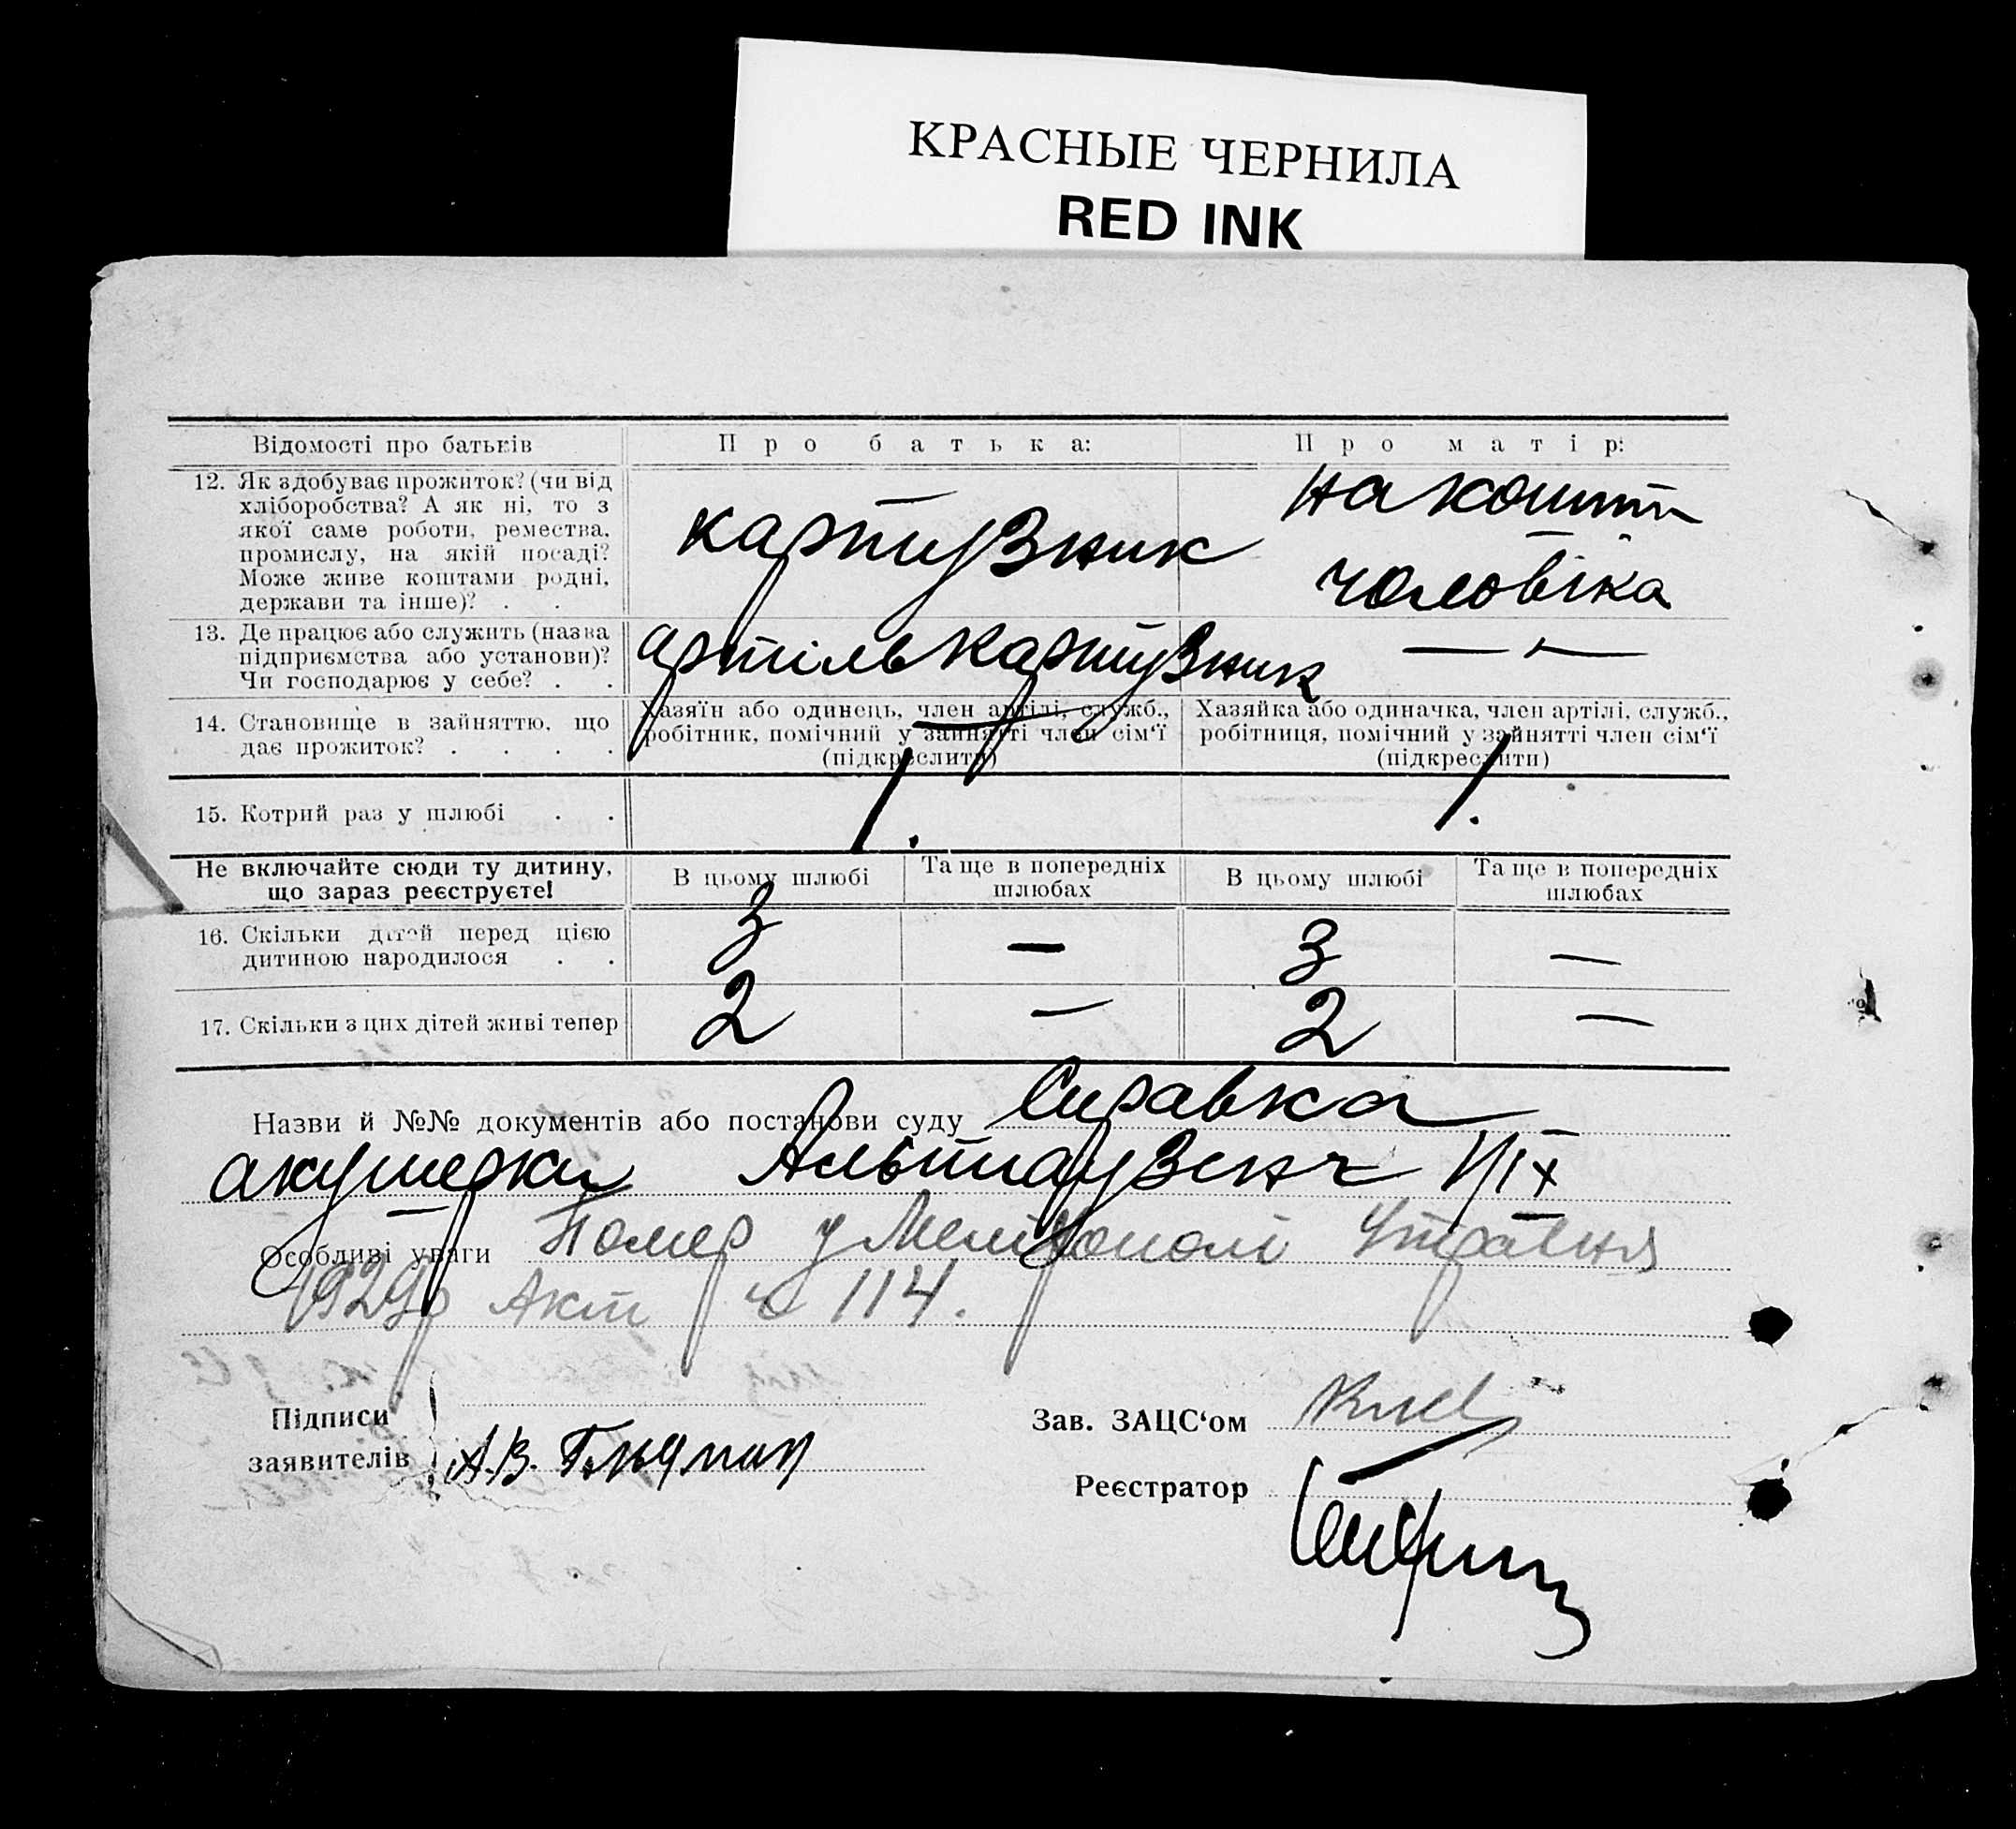 КРАСНЫЕ ЧЕРНИЛА
RED INK
Відомості про батьків
Про батька:
Про матір:
12. Як здобуває прожиток? (чи від
хліборобства? А як ні, то з
якої саме роботи, ремества,
промислу, на якій посаді?
Може живе коштами родні,
держави та інше)? . .
картузник
на кошти
чоловіка
13. Де працює або служить (назва
підприємства або установи)?
Чи господарює у себе? . .
артіль картузник
— " —
14. Становище в зайняттю, що
дає прожиток? . . . .
Хазяїн або одинець, член артілі, служб.,
робітник, помічний у занятті член сім‘ї
(підкреслити)
Хазяйка або одиначка, член артілі, служб.,
робітниця, помічний у зайнятті член сім‘ї
(підкреслити)
15. Котрий раз у шлюбі . .
1.
1.
Не включайте сюди ту дитину,
що зараз реєструєте!
В цьому шлюбі
Та ще в попередніх
шлюбах
В цьому шлюбі
Та ще в попередніх
шлюбах
16. Скільки дітей перед цією
дитиною народилося . .
3 — 3 —
17. Скільки з цих дітей живі тепер
2 — 2 —
Назви й №№ документів або постанови суду Справка
акушерки
Особливі уваги Помер у Мелітополі травня
1929р Акт № 114.
Підписи
заявителів
А.В.
Зав. ЗАЦС‘ом
Реєстратор